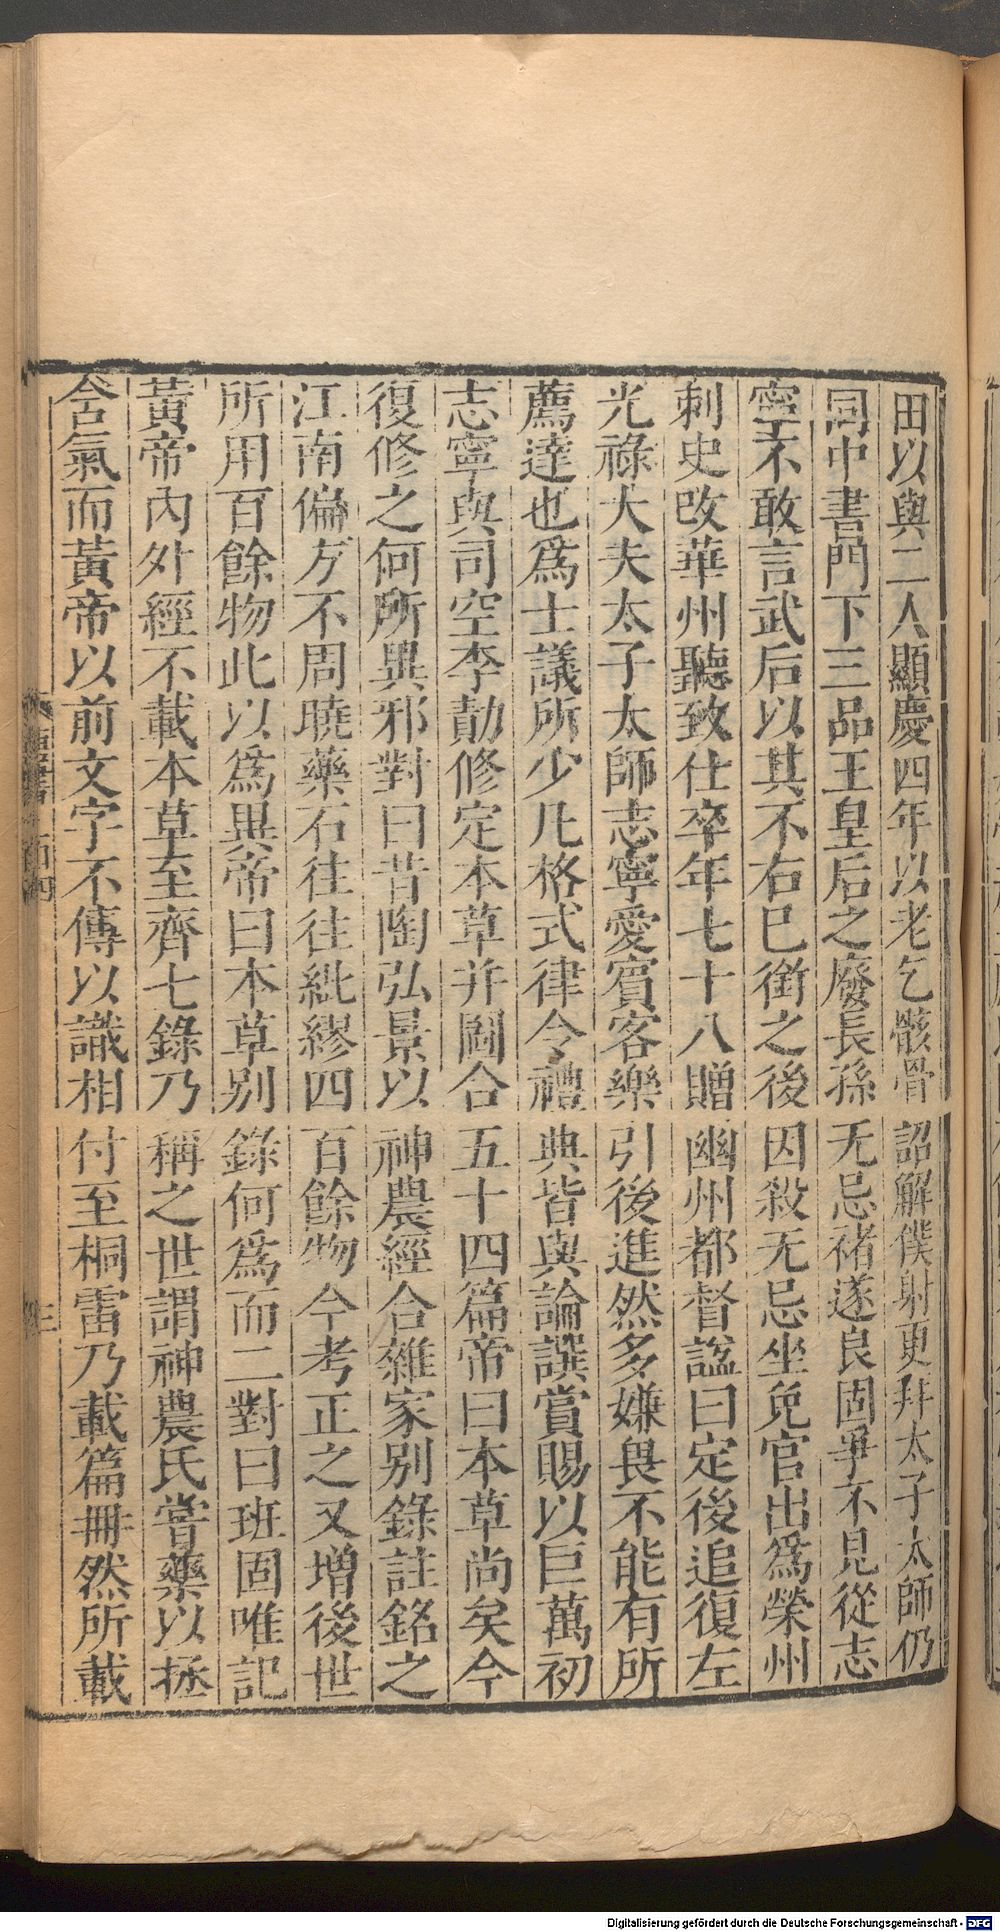 田以與二人顯慶四年以老乞骸骨詔解僕射更拜太子太師仍
同中書門下三品王皇后之廢長孫无忌褚遂良固爭不見從志
寧不敢言武后以其不右巳銜之後因殺无忌坐免官出爲榮州
刺史改華州聽致仕卒年七十八贈幽州都督諡曰定後追復左
光祿大夫太子太師志寧愛賓客樂引後進然多嫌畏不能有所
薦達也爲士議所少凡格式律令禮典皆與論譔賞賜以巨萬初
志寧與司空李勣修定本草并圖合五十四篇帝曰本草尚矣今
復修之何所異邪對曰昔陶弘景以神農經合雜家别錄註銘之
江南偏方不周曉藥石往往紕繆四百餘物今考正之又增後世
所用百餘物此以爲異帝曰本草别錄何爲而二對曰班固唯記
黃帝內外經不載本草至齊七錄乃稱之世謂神農氏嘗藥以拯
含氣而黃帝以前文字不傳以識相付至桐雷乃載篇冊然所載
Digitalisierung gefördert durch die Deutsche Forschungsgemeinschaft - DFG